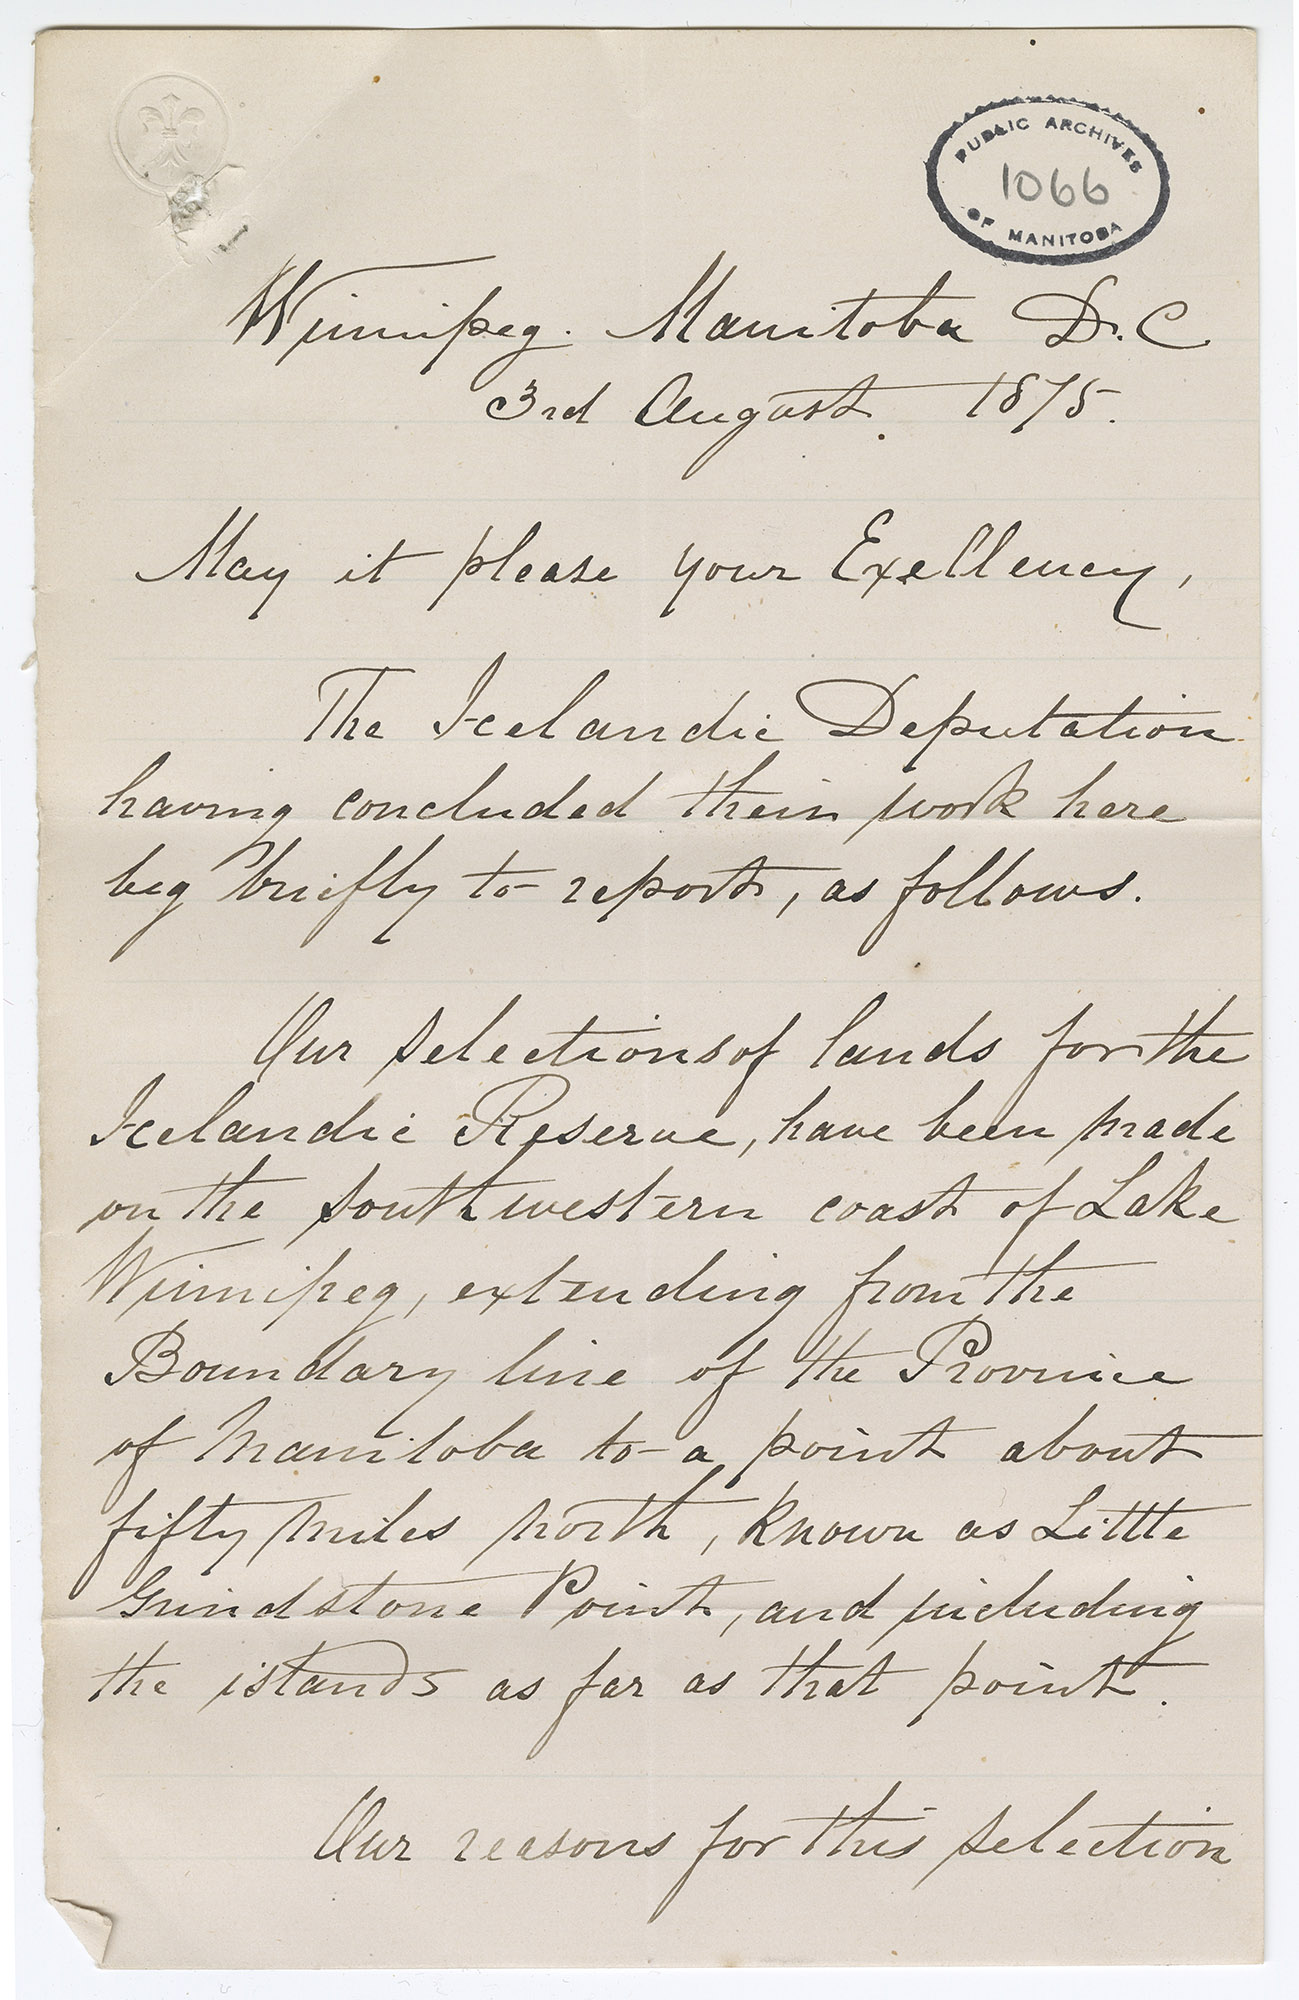 PUBLIC ARCHIVES
1066
OF MANITOBA
Winnipeg. Manitoba D.C
3rd August. 1875.
May it please your Exellency,
The Icelandic Deputation
having concluded their work here
beg briefly to report, as follows.
Our selections of lands for the
Icelandic Reserve, have been made
on the southwestern coast of Lake
Winnipeg, extending from the
Boundary line of the Province
of Manitoba to a point about
fifty miles north, known as Little
Grindstone Point, and including
the islands as far as that point.
Our reasons for this selection